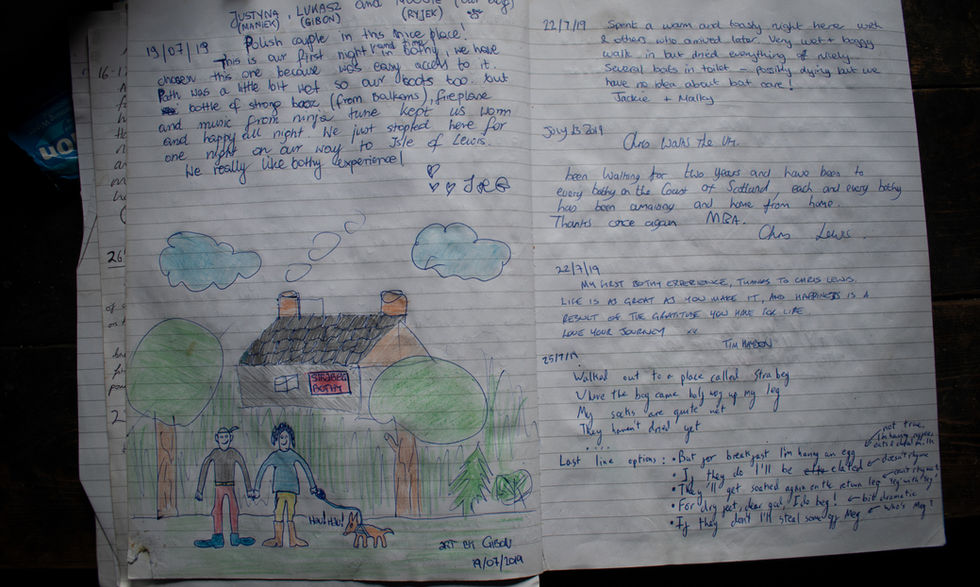 JUSTYNA, LUKASZ and
(MANIEK) (GIBON) (RYJEK)
19/07/19 Polish couple in this nice place!
This is our first night and time in bothy, we have
chosen this one because was easy access to it.
Path was a little bit wet so our boots too. but
bottle of strong booz (from Balkans), fireplace
and music from ninja tune kept us worm
and happy all night. We just stopped here for
one night on our way to Isle of Lewis.
We really like bothy experience!
STRABEG
BOTHY
Hau! Hau!
ART BY GIBON
19/07/2019
16-1
26
2
22/7/19 Spent a warm and toasty night here with
2 others who arrived later. Very wet + boggy
walk in but dried everything nicely.
Several bats in toilet – possibly dying but we
have no idea about bat care!
Jackie + Malky
July 23 2019
Chris Walks the UK.
been Walking for two years and have been to
every bothy on the Coast of Scotland, each and every bothy
has been amazing and home from home.
Thanks once again MBA.
Chris Lewis.
22/7/19
MY FIRST BOTHY EXPERIENCE, THANKS TO CHRIS LEWIS.
LIFE IS AS GREAT AS YOU MAKE IT, AND HAPPINESS IS A
RESULT OF THE GRATITUDE YOU HAVE FOR LIFE
LOVE YOUR JOURNEY xx
TIM
25/7/19
Walked out to a place called Strabeg
Where the bog came half way up my leg
My socks are quite wet
They haven't dried yet
....
Last line options: • But for breakfast I'm having an egg ← not true, I'm having oats
• If they do I'll be elated ← doesn't rhyme
• They'll get soaked again on the return leg ← can't rhyme "leg" with "leg"!
• For dry feet, dear God, I do beg! ← bit dramatic
• If they don't I'll steal some off Meg ← who's Meg!